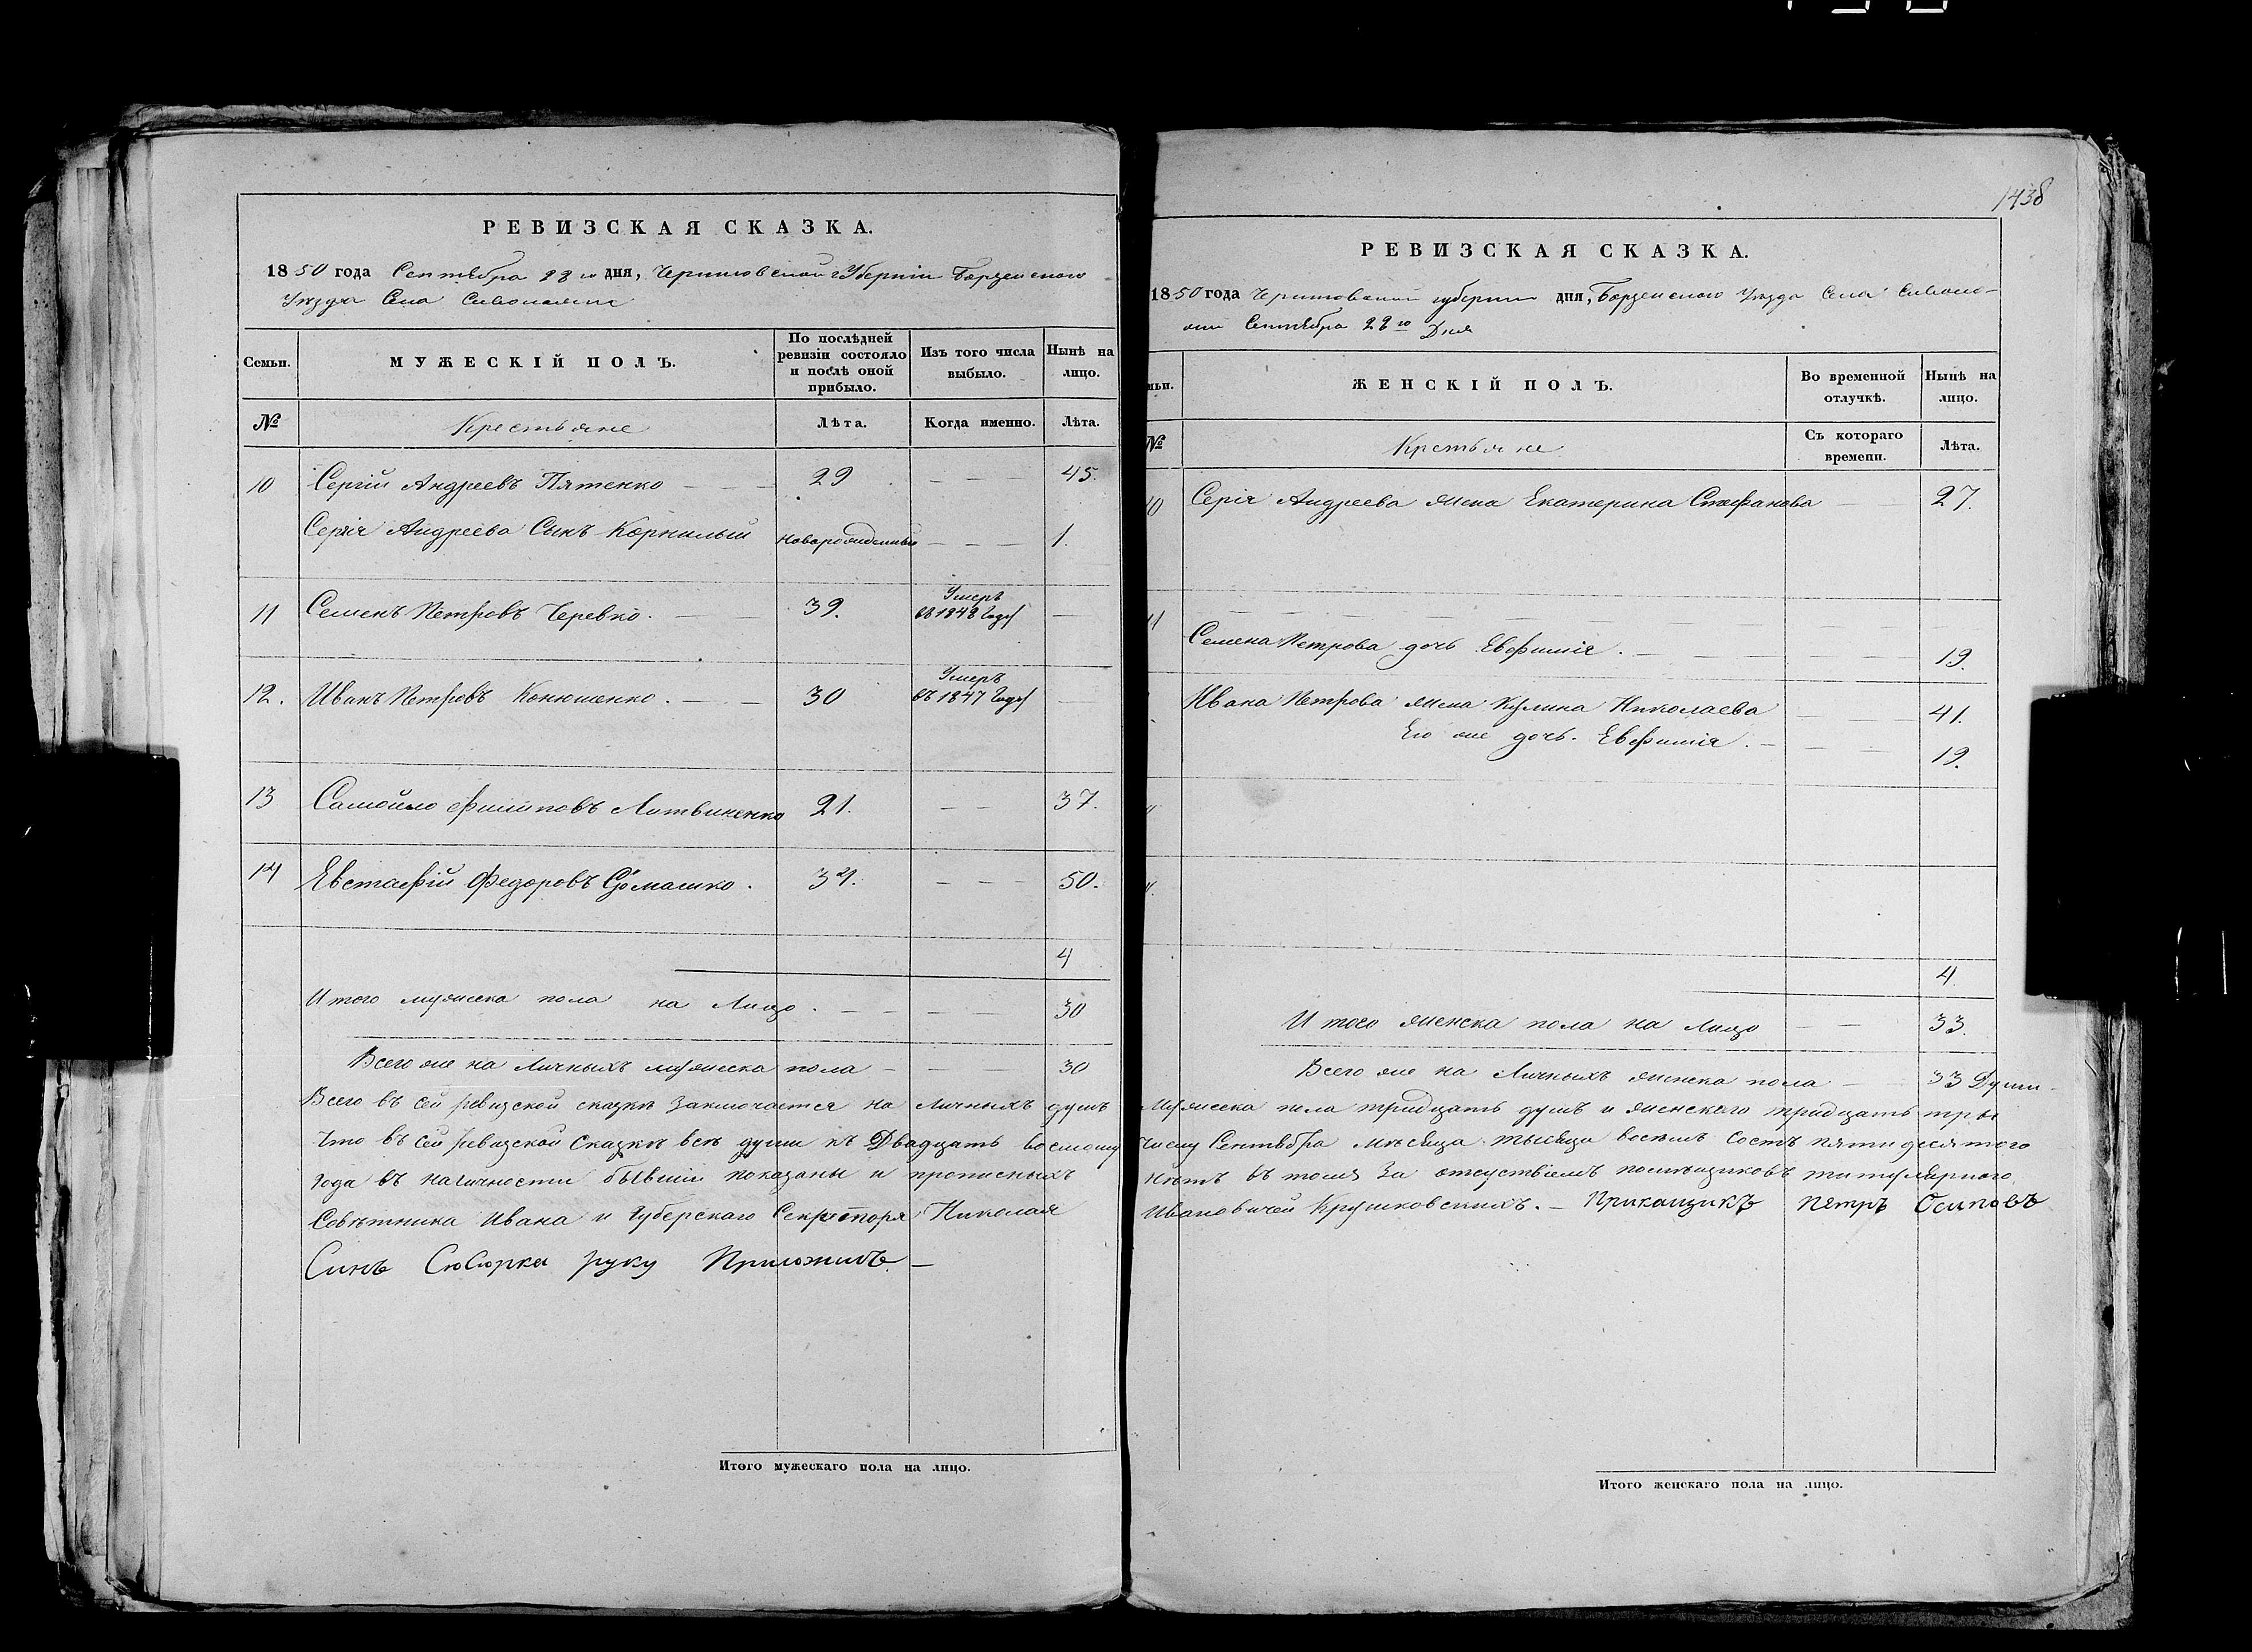 1438
РЕВИЗСКАЯ СКАЗКА.
1850 года Сентября 28го дня, Черниговской Губерніи Борзенского
Уѣзда Села Сиволожи
Семьи. МУЖЕСКІЙ ПОЛЪ. По послѣдней ревизіи состояло и послѣ оной прибыло. Изъ того числа выбыло. Нынѣ на лицо.
№ Крестьяне Лѣта. Когда именно. Лѣта.
10 Сергій Андреевъ Пятенко — — 29 — — — 45.
Сергія Андреева Сынъ Корнилый новорожденный — — — 1.
11 Семенъ Петровъ Черевко. — — 39. Умеръ въ 1848 Году —
12. Иванъ Петровъ Конюшенко. — — 30 Умеръ въ 1847 Году —
13 Самойло Филиповъ Литвиненко 21. — — 37.
14 Евстафій Федоровъ Сомашко. 34. — — — 50.
4
Итого мужеска пола на Лицо. — — — — 30
Всего же на Личныхъ мужеска пола — — — 30
Всего въ сей ревизской сказкѣ заключается на Личныхъ душъ
Что въ сей ревизской Сказкѣ всѣ души къ Двадцать восмому
года въ наличности бывшіи показаны и прописныхъ
Совѣтника Ивана и Губерскаго Секреторя Николая
Синъ Сюсюрка руку Приложилъ —
Итого мужескаго пола на лицо.
РЕВИЗСКАЯ СКАЗКА.
1850 года Черниговской губерніи дня, Борзенского Уѣзда Села Сиволо-
жи Сентября 28го Дня
мьи. ЖЕНСКІЙ ПОЛЪ. Во временной отлучкѣ. Нынѣ на лицо.
№ Крестьяне Съ котораго времени. Лѣта.
10 Сергія Андреева жена Екатерина Стефанова — — 27.
11 — — — — — — — —
Семена Петрова дочь Евфимія. — — — — — 19.
Ивана Петрова жена Кулина Николаева — — — 41.
Его же дочь. Евфимія. — — — — 19.
4.
Итого женска пола на Лицо — — 33.
Всего же на Личныхъ женска пола — 33 Души
мужеска пола тридцать душъ и женского тридцать тры
числу Сентября Мѣсяца тысяща восемъ состъ пятидесятого
нѣтъ въ томъ За отсуствіемъ помѣщиковъ титулярного
Ивановичей Крушковскихъ. — Прикащикъ Петръ Осиповъ
Итого женскаго пола на лицо.